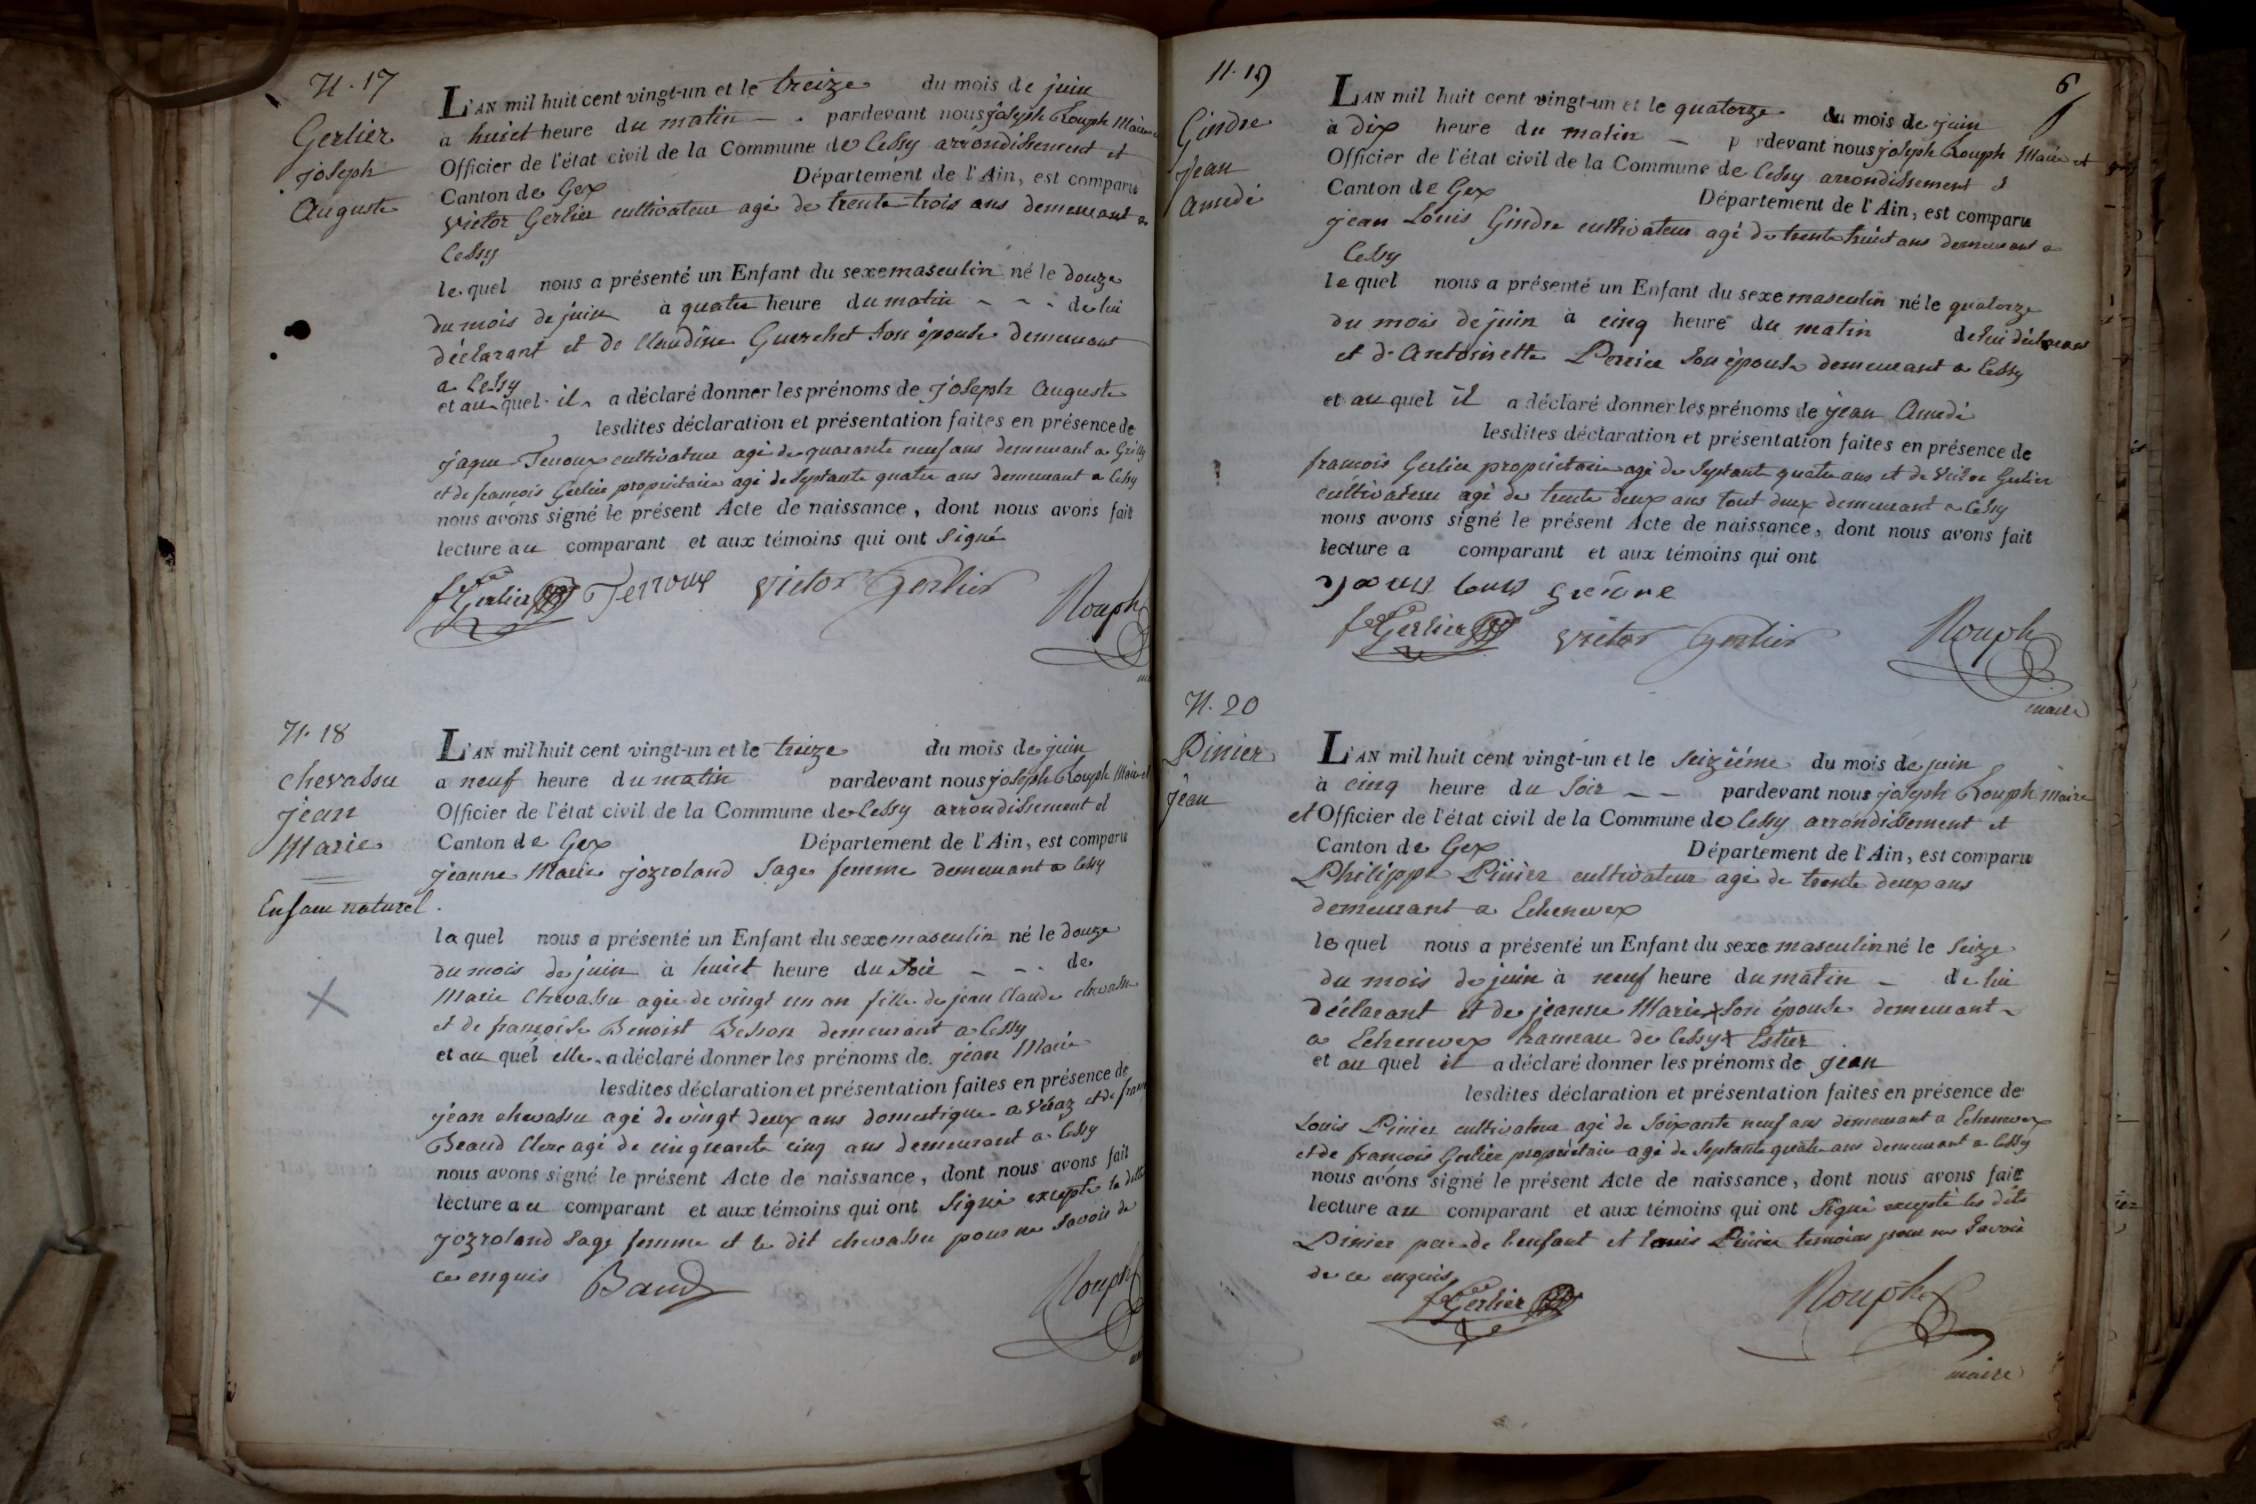 N. 17
Gerlier
joseph
Auguste
L'AN mil huit cent vingt-un et le treize du mois de juin
a huict heure du matin — pardevant nous joseph Rouph Maire
Officier de l'état civil de la Commune de Cessy arrondissement et
Canton de Gex Département de l'Ain, est comparu
Victor Gerlier cultivateur agé de trente trois ans demeurant a
Cessy
le quel nous a présenté un Enfant du sexe masculin né le douze
du mois de juin à quatre heure du matin - - - de lui
déclarant et de Claudine Guerchet son épouse demeurant
a Cessy
et au quel il a déclaré donner les prénoms de joseph Auguste
lesdites déclaration et présentation faites en présence de
jaque Terroux cultivateur agé de quarante neuf ans demeurant a Grilly
et de françois Gerlier propriétaire agé de Septante quatre ans demeurant a Cessy
nous avons signé le présent Acte de naissance, dont nous avons fait
lecture au comparant et aux témoins qui ont Signé
fçois Gerlier Terroux Victor Gerlier
Rouph
N. 18
chevassu
jean
Marie
Enfant naturel
L'AN mil huit cent vingt-un et le treize du mois de juin
a neuf heure du matin pardevant nous joseph Rouph Maire et
Officier de l'état civil de la Commune de Cessy arrondissement et
Canton de Gex Département de l'Ain, est comparu
jeanne Marie jozroland Sage femme demeurant a Cessy
la quel nous a présenté un Enfant du sexe masculin né le douze
du mois de juin à huict heure du Soir - - - de
Marie Chevassu agée de vingt un an fille de jean Claude chevassu
et de françoise Benoist Besson demeurant a Cessy
et au quel elle a déclaré donner les prénoms de jean Marie
lesdites déclaration et présentation faites en présence de
jean chevassu agé de vingt deux ans domestique a Véraz et de
Beaud Clerc agé de cinquante cinq ans demeurant a Cessy
nous avons signé le présent Acte de naissance, dont nous avons fait
lecture au comparant et aux témoins qui ont Signé excepté la ditte
jozroland Sage femme et le dit chevassu pour ne Savoir de
ce enquis Baud
Rouph
N. 19
Gindre
jean
Amedé
6
L'AN mil huit cent vingt-un et le quatorze du mois de juin
à Dix heure du matin — pardevant nous joseph Rouph Maire et
Officier de l'état civil de la Commune de Cessy arrondissement et
Canton de Gex Département de l'Ain, est comparu
jean Louis Gindre cultivateur agé de trente huict ans demeurant a
Cessy
le quel nous a présenté un Enfant du sexe masculin né le quatorze
du mois de juin à cinq heure du matin de lui déclarant
et d'Antoinette Perrier Son épouse demeurant a Cessy
et au quel il a déclaré donner les prénoms de jean Amedé
lesdites déclaration et présentation faites en présence de
francois Gerlier propriétaire agé de Septante quatre ans et de Victor Gerlier
cultivateur agé de trente deux ans tout deux demeurant a Cessy
nous avons signé le présent Acte de naissance, dont nous avons fait
lecture a comparant et aux témoins qui ont
fçois Gerlier Victor Gerlier Rouph
maire
N. 20
Pinier
jean
L'AN mil huit cent vingt-un et le Seizième du mois de juin
à cinq heure du Soir — — pardevant nous joseph Rouph Maire
et Officier de l'état civil de la Commune de Cessy arrondissement et
Canton de Gex Département de l'Ain, est comparu
Philippe Pinier cultivateur agé de trente deux ans
demeurant a Echenevex
le quel nous a présenté un Enfant du sexe masculin né le Seize
du mois de juin à neuf heure du matin — de lui
déclarant et de jeanne Marie x Son épouse demeurant
a Echenevex hameau de Cessy x Estier
et au quel il a déclaré donner les prénoms de jean
lesdites déclaration et présentation faites en présence de
Louis Pinier cultivateur agé de Soixante neuf ans demeurant a Echenevex
et de françois Gerlier propriétaire agé de Septante quatre ans demeurant a Cessy
nous avons signé le présent Acte de naissance, dont nous avons fait
lecture au comparant et aux témoins qui ont Signé excepté les dits
Pinier pere de l'enfant et Louis Pinier temoins pour ne Savoir
de ce enquis
fçois Gerlier Rouph
maire